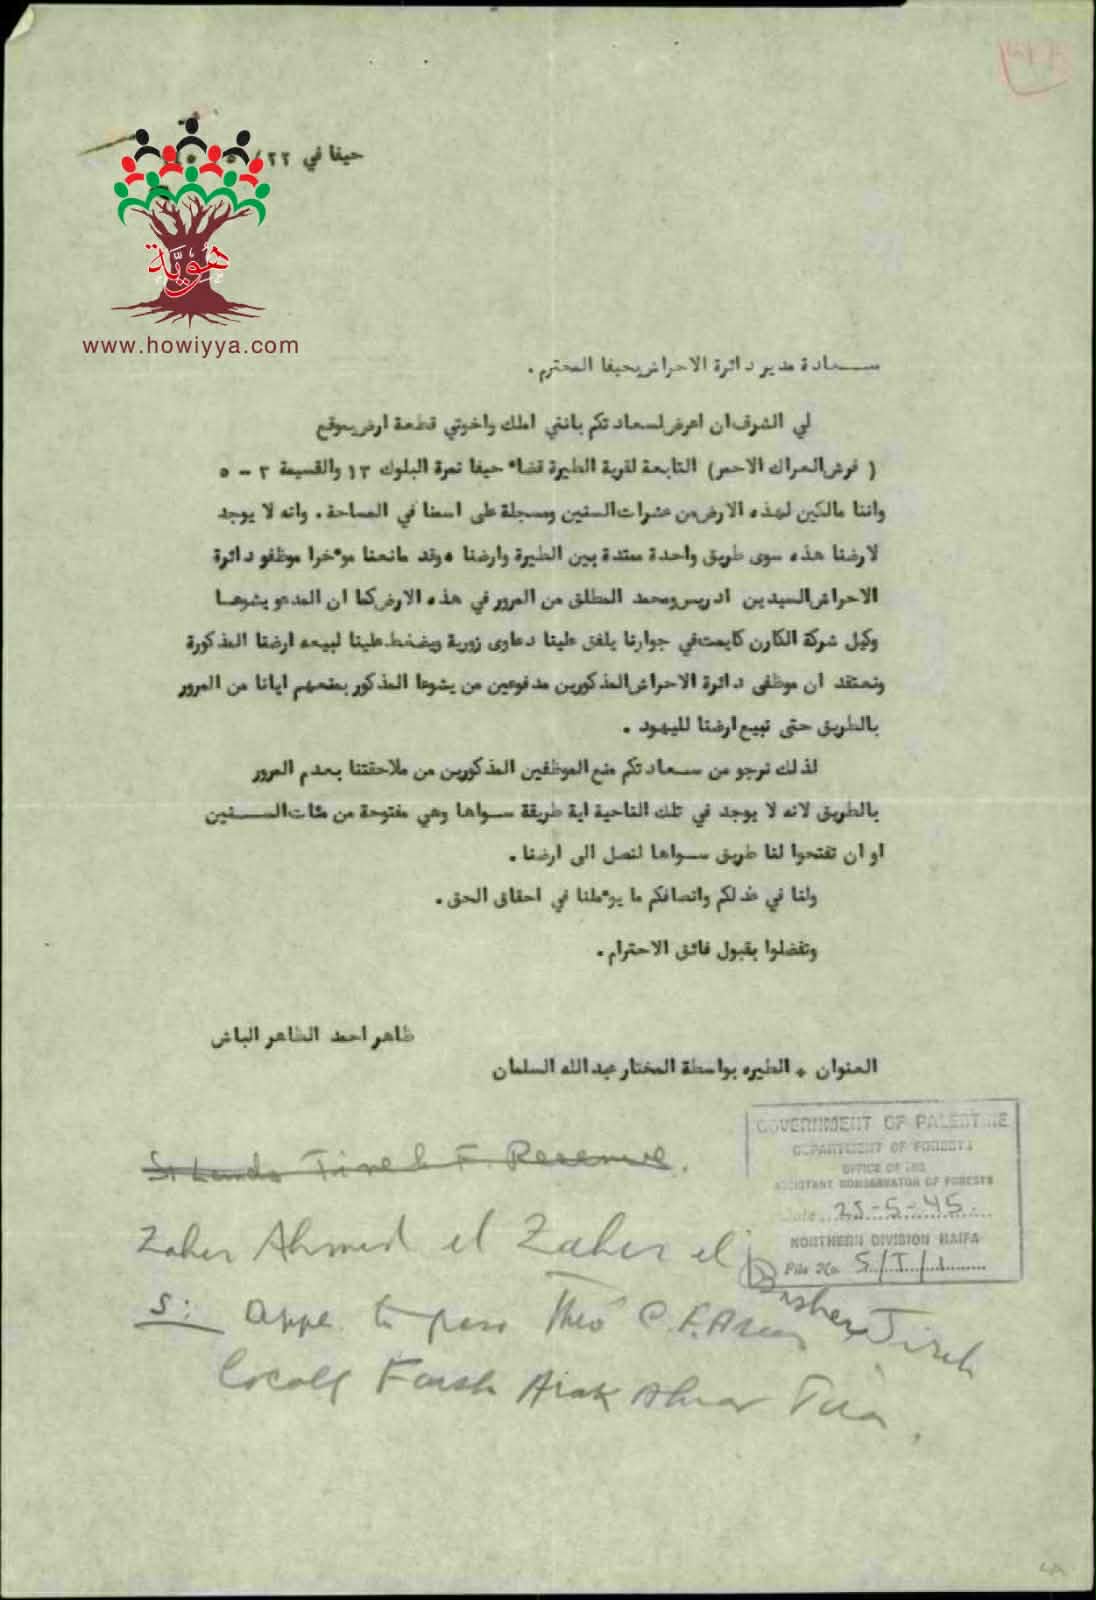 حيفا في ٢٢/
هوية
www.howiyya.com
ســعادة مدير دائرة الاحراش بحيفا المحترم .
لي الشرف ان اعرض لسعادتكم بانني املك واخوتي قطعة ارض بموقع
( فرش العراك الاحمر) التابعة لقرية الطيرة قضاء حيفا نمرة البلوك ١٣ والقسيمة ٢ - ٥
واننا مالكين لهذه الارض من عشرات السنين ومسجلة على اسمنا في المساحة . وانه لا يوجد
لارضنا هذه سوى طريق واحدة ممتدة بين الطيرة وارضنا ٠ وقد مانعنا موءخرا موظفو دائرة
الاحراش السيدين ادريس ومحمد المطلق من المرور في هذه الارض كما ان المدعو يشوعا
وكيل شركة الكارن كايمت في جوارنا يلفق علينا دعاوى زورية ويضغط علينا لبيعه ارضنا المذكورة
ونعتقد ان موظفى دائرة الاحراش المذكورين مدفوعين من يشوعا المذكور بمنعهم ايانا من المرور
بالطريق حتى نبيع ارضنا لليهود .
لذلك نرجو من سعادتكم منع الموظفين المذكورين من ملاحقتنا بعدم المرور
بالطريق لانه لا يوجد في تلك الناحية اية طريقة سواها وهي مفتوحة من مئات الســنين
او ان تفتحوا لنا طريق سواها لنصل الى ارضنا .
ولنا في عدلكم وانصافكم ما يوءملنا في احقاق الحق .
وتفضلوا بقبول فائق الاحترام .
ظاهر احمد الظاهر الباش
العنوان * الطيره بواسطة المختار عبدالله السلمان
GOVERNMENT OF PALESTINE
DEPARTMENT OF FORESTS
OFFICE OF THE
ASSISTANT CONSERVATOR OF FORESTS
Date 25-5-45.
NORTHERN DIVISION HAIFA
File No. S/T/1
Lands Tireh F. Reserve.
Zaher Ahmed el Zaher el Tireh
S: to pass C.F.
Farsh Arak Ahmar Tira.